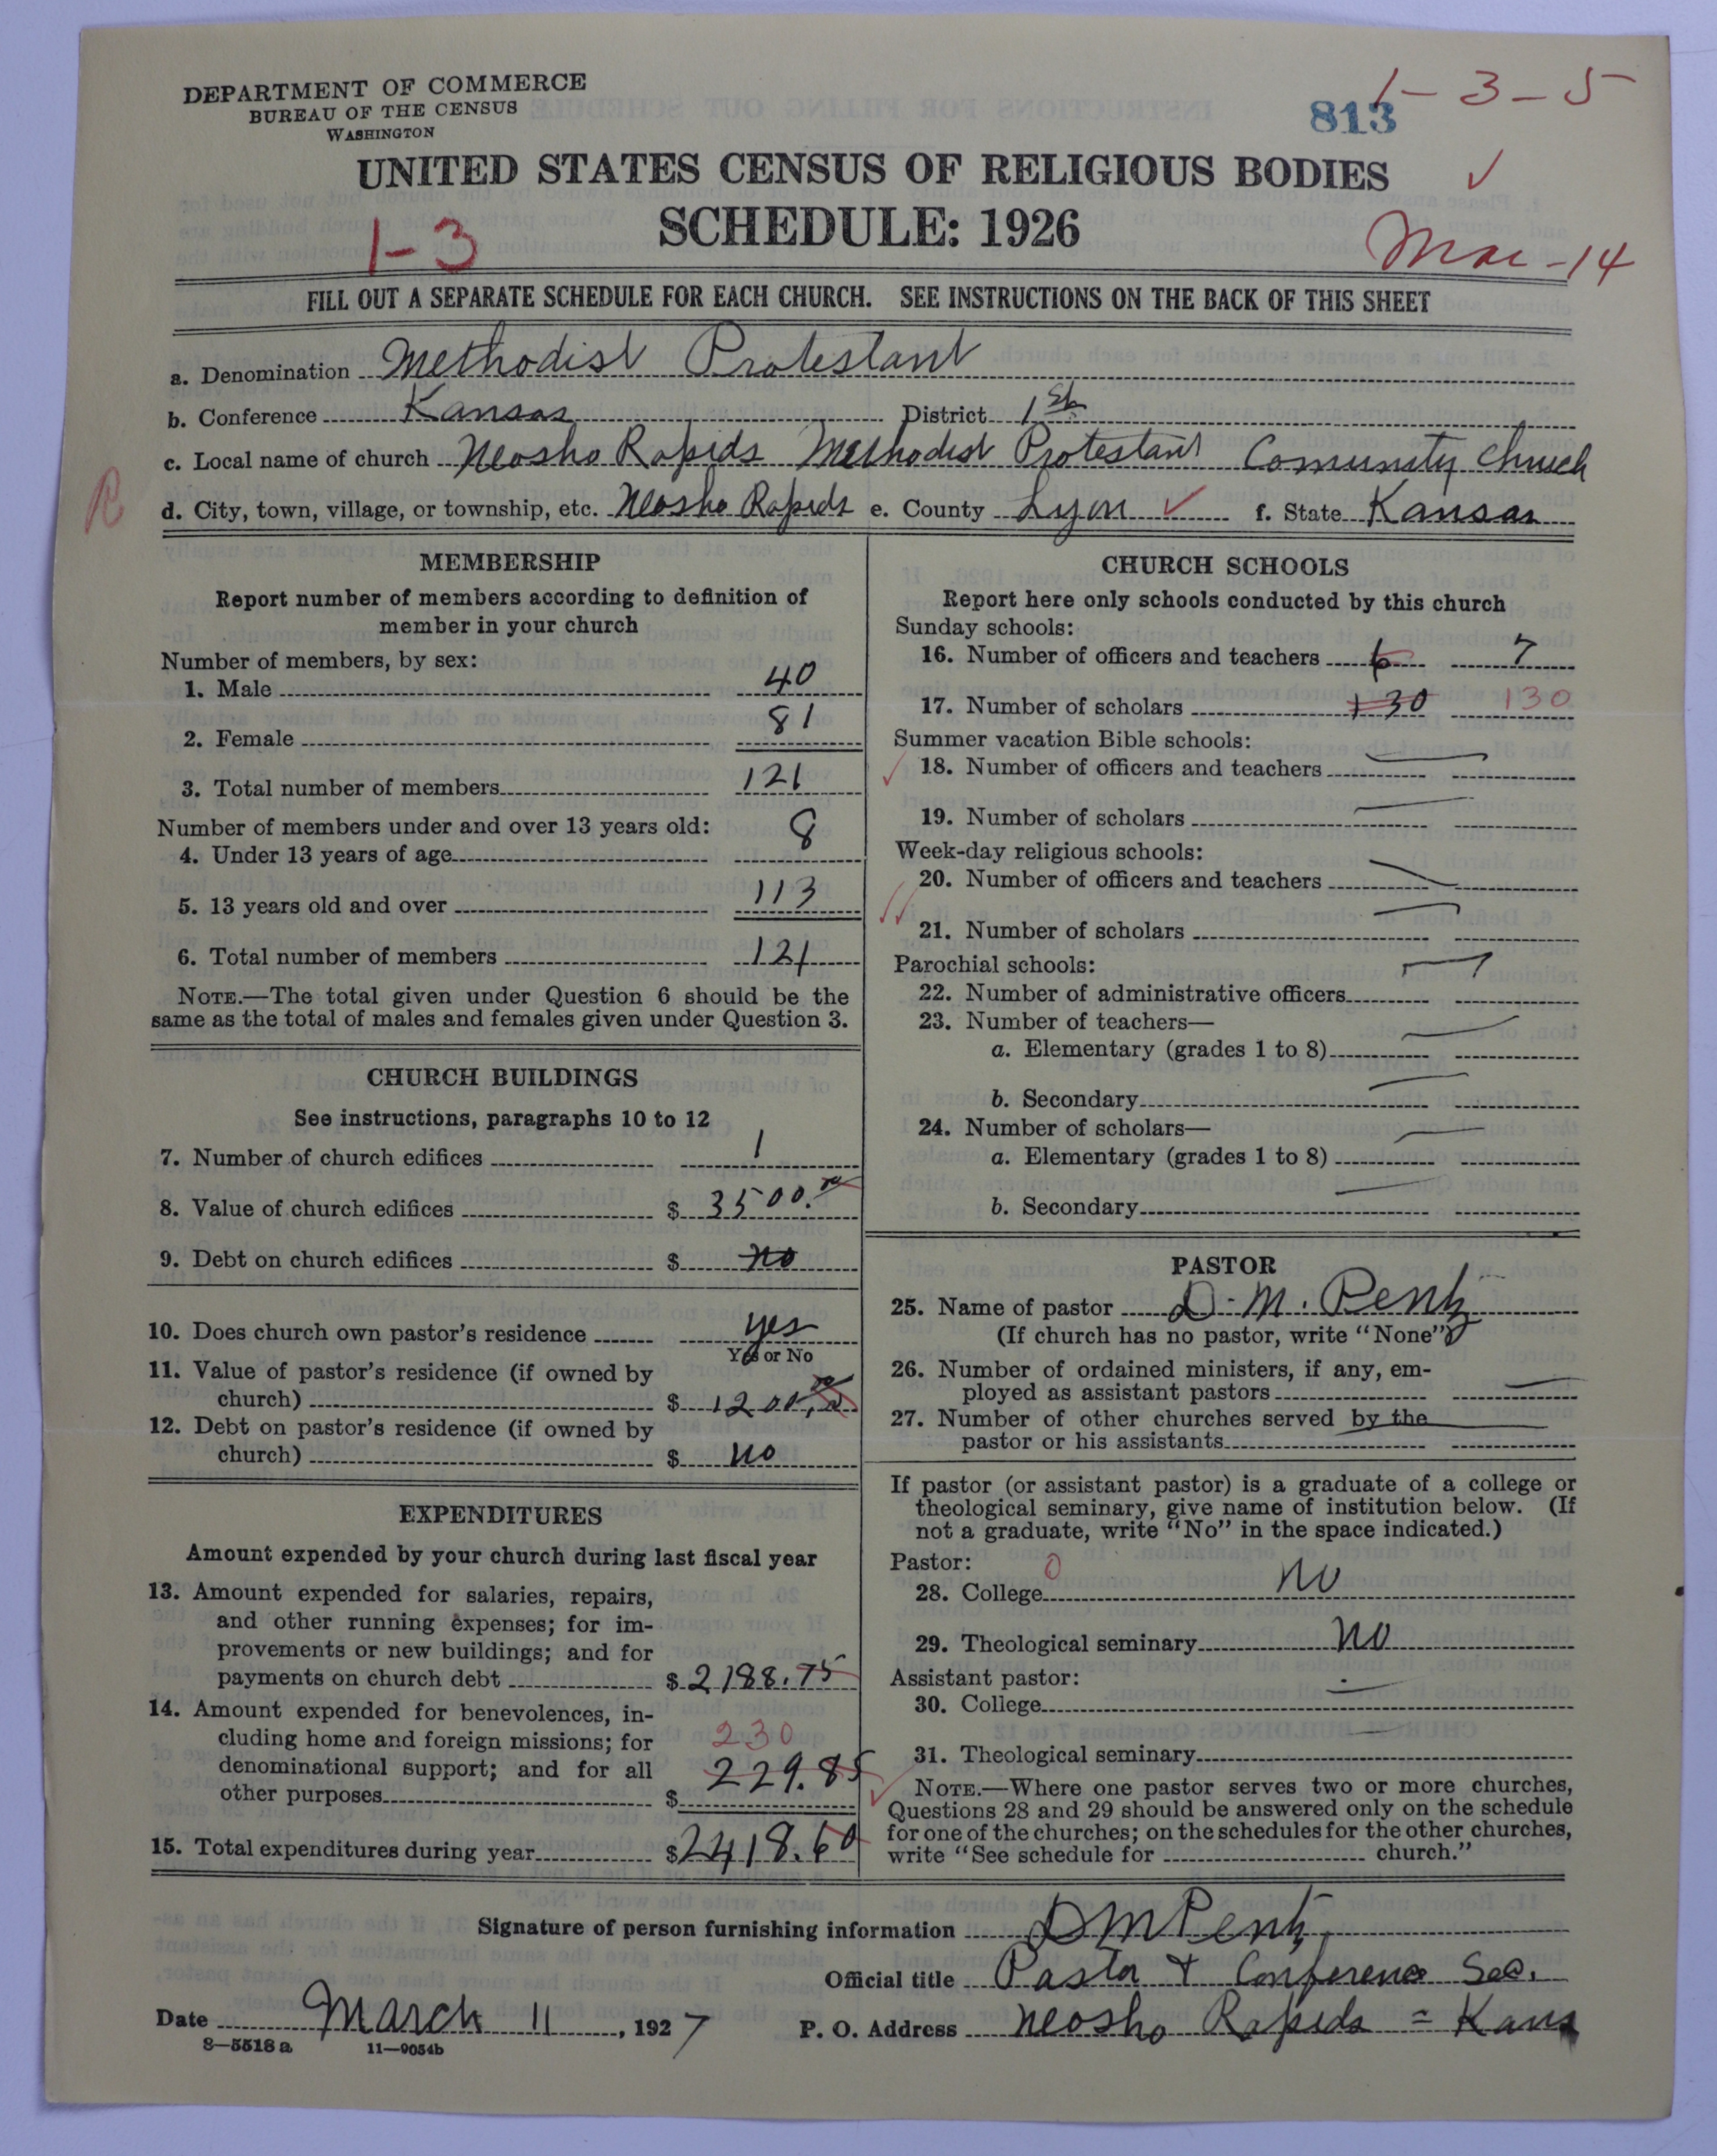 DEPARTMENT OF COMMERCE
BUREAU OF THE CENSUS
WASHINGTON
813
1-3-5
UNITED STATES CENSUS OF RELIGIOUS BODIES
SCHEDULE: 1926
1-3
Mar-14
FILL OUT A SEPARATE SCHEDULE FOR EACH CHURCH. SEE INSTRUCTIONS ON THE BACK OF THIS SHEET
a. Denomination Methodist Protestant
b. Conference Kansas District 1st
c. Local name of church Neosho Rapids Methodist Protestant Comunity Church
R
d. City, town, village, or township, etc. Neosho Rapids e. County Lyon f. State Kansas
MEMBERSHIP
Report number of members according to definition of
member in your church
Number of members, by sex:
1. Male 40
2. Female 81
3. Total number of members 121
Number of members under and over 13 years old:
4. Under 13 years of age 8
5. 13 years old and over 113
6. Total number of members 121
NOTE.—The total given under Question 6 should be the
same as the total of males and females given under Question 3.
CHURCH BUILDINGS
See instructions, paragraphs 10 to 12
7. Number of church edifices 1
8. Value of church edifices $ 3500.
9. Debt on church edifices $ no
10. Does church own pastor's residence yes
Yes or No
11. Value of pastor's residence (if owned by
church) $ 1200.
12. Debt on pastor's residence (if owned by
church) $ no
EXPENDITURES
Amount expended by your church during last fiscal year
13. Amount expended for salaries, repairs,
and other running expenses; for im-
provements or new buildings; and for
payments on church debt $ 2188.75
14. Amount expended for benevolences, in-
cluding home and foreign missions; for 230
denominational support; and for all 229.85
other purposes $
15. Total expenditures during year $ 2418.60
CHURCH SCHOOLS
Report here only schools conducted by this church
Sunday schools:
16. Number of officers and teachers 6 7
17. Number of scholars 130 130
Summer vacation Bible schools:
18. Number of officers and teachers
19. Number of scholars
Week-day religious schools:
20. Number of officers and teachers
21. Number of scholars
Parochial schools:
22. Number of administrative officers
23. Number of teachers—
a. Elementary (grades 1 to 8)
b. Secondary
24. Number of scholars—
a. Elementary (grades 1 to 8)
b. Secondary
PASTOR
25. Name of pastor D. M. Pentz
(If church has no pastor, write "None")
26. Number of ordained ministers, if any, em-
ployed as assistant pastors
27. Number of other churches served by the
pastor or his assistants
If pastor (or assistant pastor) is a graduate of a college or
theological seminary, give name of institution below. (If
not a graduate, write "No" in the space indicated.)
Pastor: 0
28. College no
29. Theological seminary no
Assistant pastor:
30. College
31. Theological seminary
NOTE.—Where one pastor serves two or more churches,
Questions 28 and 29 should be answered only on the schedule
for one of the churches; on the schedules for the other churches,
write "See schedule for church."
Signature of person furnishing information D M Pentz
Official title Pastor & Conference Sec.
Date March 11, 1927 P. O. Address Neosho Rapids = Kans
8—5518 a 11—9054b